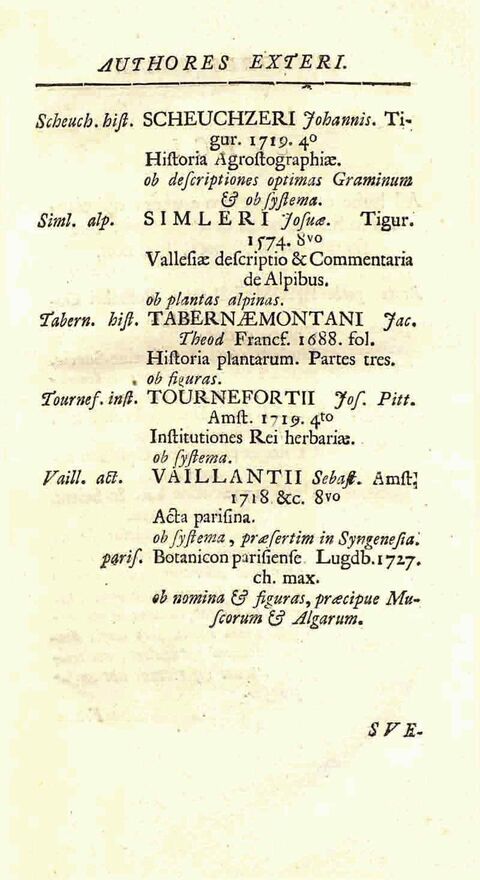 AUTHORES EXTERI.
Scheuch. hiſt. SCHEUCHZERI Johannis. Ti-
gur. 1719. 4⁰
Hiſtoria Agroſtographiæ.
ob deſcriptiones optimas Graminum
& ob ſyſtema.
Siml. alp. SIMLERI Joſuæ. Tigur.
1574. 8vo
Valleſiæ deſcriptio & Commentaria
de Alpibus.
ob plantas alpinas.
Tabern. hiſt. TABERNÆMONTANI Jac.
Theod Francf. 1688. fol.
Hiſtoria plantarum. Partes tres.
ob figuras.
Tournef. inſt. TOURNEFORTII Joſ. Pitt.
Amſt. 1719. 4to
Inſtitutiones Rei herbariæ.
ob ſyſtema.
Vaill. act. VAILLANTII Sebaſt. Amſt.
1718 &c. 8vo
Acta pariſina.
ob ſyſtema, præſertim in Syngeneſia.
pariſ. Botanicon pariſienſe Lugdb. 1727.
ch. max.
ob nomina & figuras, præcipue Mu-
ſcorum & Algarum.
SVE-